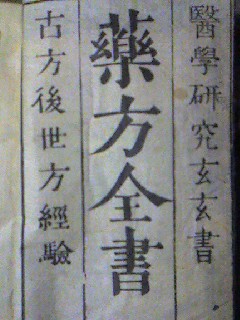 醫學研究玄玄書
藥方全書
古方後世方經驗